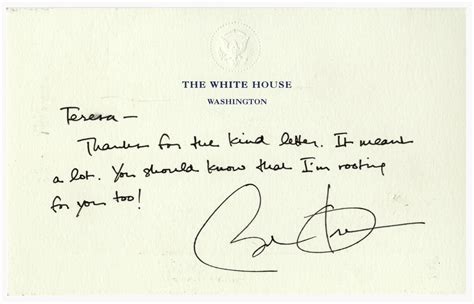 THE WHITE HOUSE
WASHINGTON
Teresa—
Thanks for the kind letter. It meant
a lot. You should know that I'm rooting
for you too!